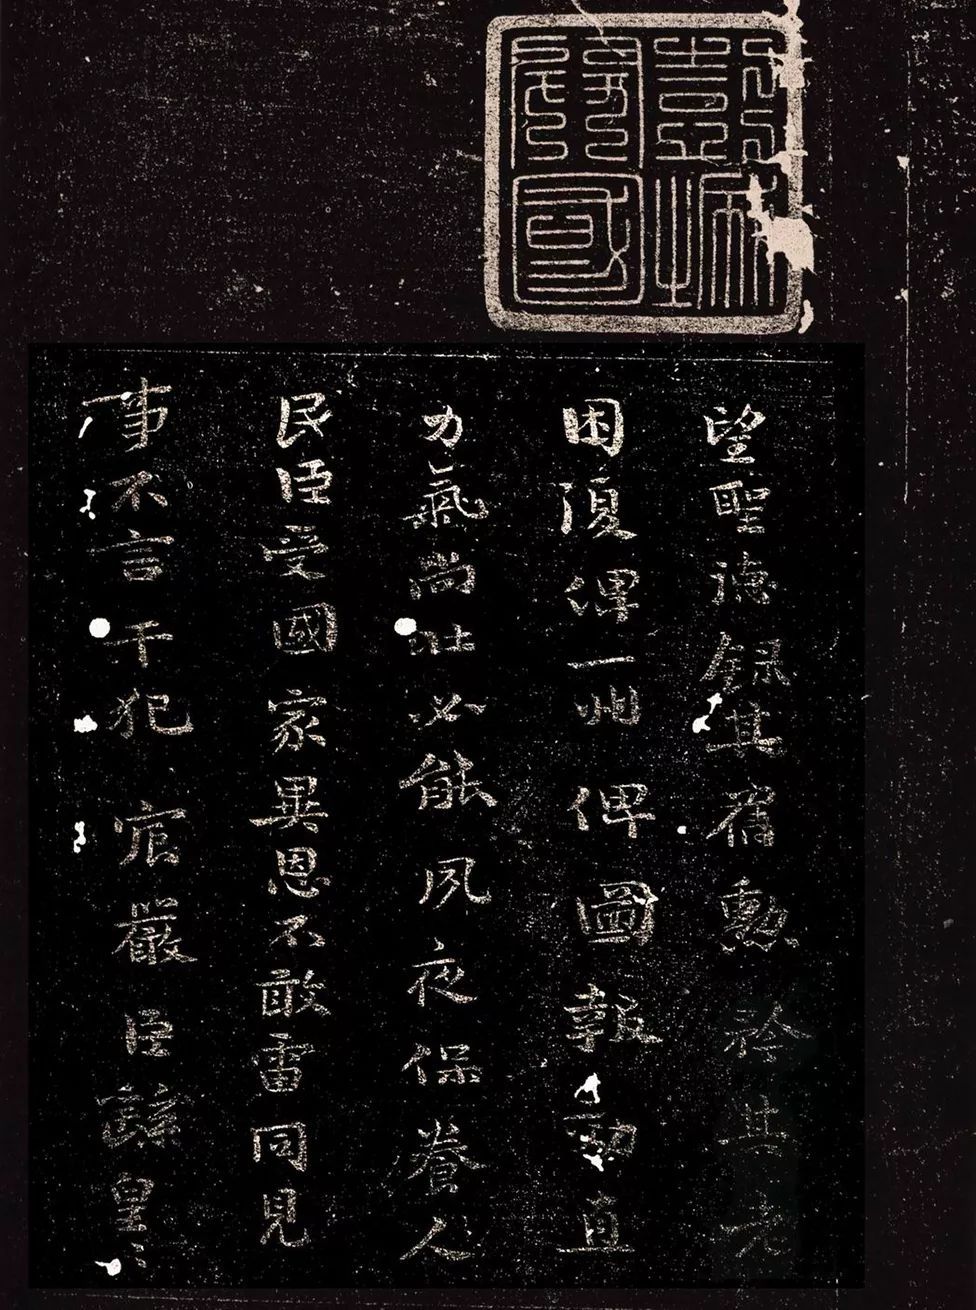 望聖德錄其舊勳矜其老
困復俾一州俾圖報効直
力氣尚壯必能夙夜保養人
民臣受國家異恩不敢雷同見
事不言干犯宸嚴臣繇皇々